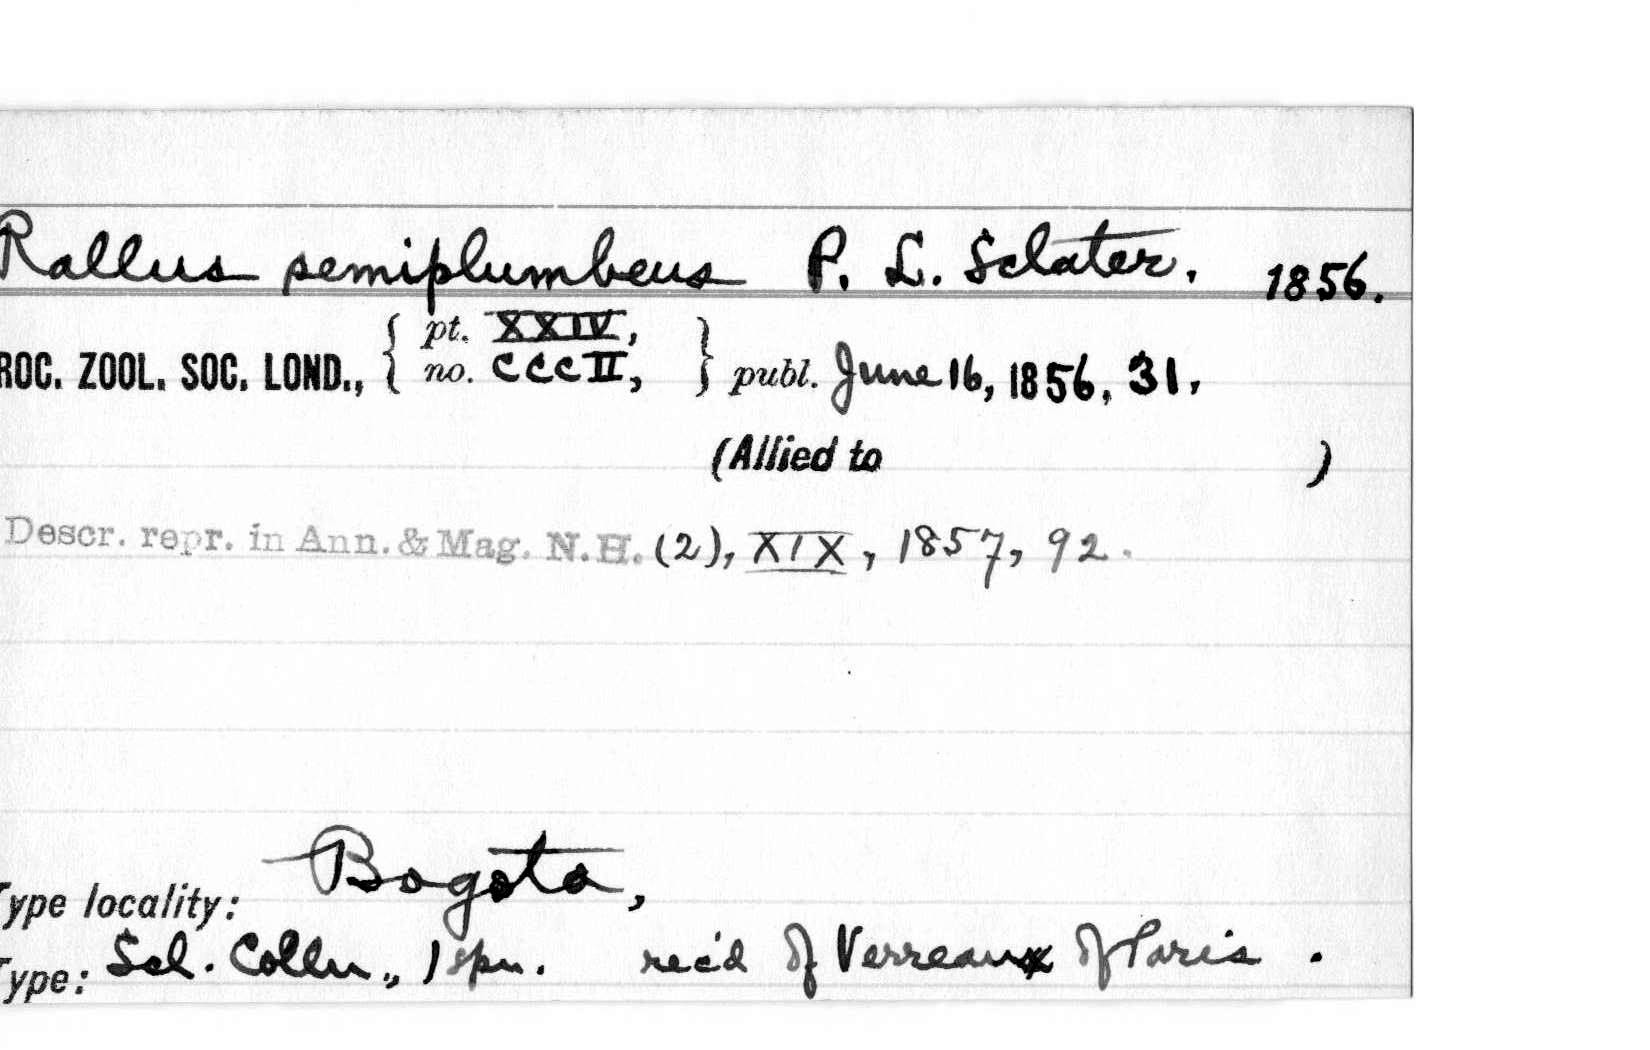 Rallus semiplumbeus P. L. Sclater. 1856.
ROC. ZOOL. SOC. LOND., { pt. XXIV, no. CCCII, } publ. June 16, 1856, 31.
(Allied to )
Descr. repr. in Ann. & Mag. N.H. (2), XIX, 1857, 92.
Type locality: Bogota,
Type: Scl. Colln., 1 spn. rec'd of Verreaux of Paris.